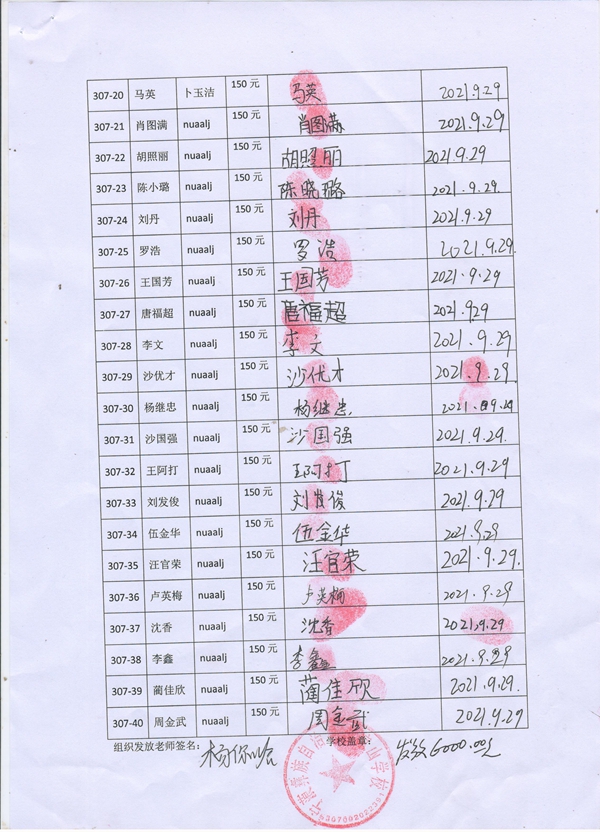 307-20 马英 卜玉洁 150 元 马英 2021.9.29
307-21 肖图满 nuaalj 150 元 肖图满 2021.9.29
307-22 胡照丽 nuaalj 150 元 胡照丽 2021.9.29
307-23 陈小璐 nuaalj 150 元 陈晓璐 2021.9.29
307-24 刘丹 nuaalj 150 元 刘丹 2021.9.29
307-25 罗浩 nuaalj 150 元 罗浩 2021.9.29.
307-26 王国芳 nuaalj 150 元 王国芳 2021.9.29
307-27 唐福超 nuaalj 150 元 唐福超 2021.929
307-28 李文 nuaalj 150 元 李文 2021.9.29
307-29 沙优才 nuaalj 150 元 沙优才 2021.9.29
307-30 杨继忠 nuaalj 150 元 杨继忠 2021.9.29
307-31 沙国强 nuaalj 150 元 沙国强 2021.9.29.
307-32 王阿打 nuaalj 150 元 王阿打 2021.9.29
307-33 刘发俊 nuaalj 150 元 刘发俊 2021.9.29
307-34 伍金华 nuaalj 150 元 伍金华 2021.9.29
307-35 汪官荣 nuaalj 150 元 汪官荣 2021.9.29.
307-36 卢英梅 nuaalj 150 元 卢英梅 2021.9.29
307-37 沈香 nuaalj 150 元 沈香 2021.9.29
307-38 李鑫 nuaalj 150 元 李鑫 2021.9.29
307-39 蔺佳欣 nuaalj 150 元 蔺佳欣 2021.9.29.
307-40 周金武 nuaalj 150 元 周金武 2021.9.29
组织发放老师签名： 学校盖章： 发放6000.00元